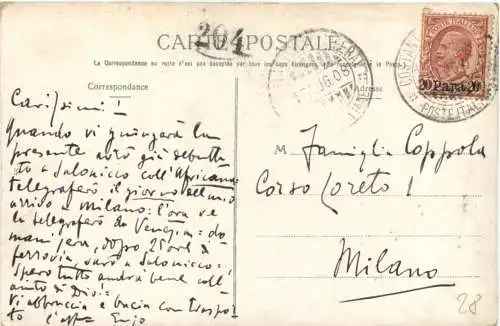 204
CARTE POSTALE
La Correspondance au recto n'est pas acceptée par tous les pays étrangers
Correspondance
Adresse
20 Para 20
POSTE ITAL
UG 08
Carissimi!
Quando vi giungerà la
presente avrò già debutta
to a Salonicco coll'Africana
telegraferò il giorno del mio
arrivo a Milano: l'ora ve
la telegraferò da Venezia: do
mani sera, dopo 25 ore di
ferrovia, sarò a Salonicco:
Spero tutto andrà bene coll'
aiuto di Dio!
Vi abbraccia e bacia con traspor
to l'aff Enzo
M Famiglia Coppola
Corso Loreto 1
Milano
28